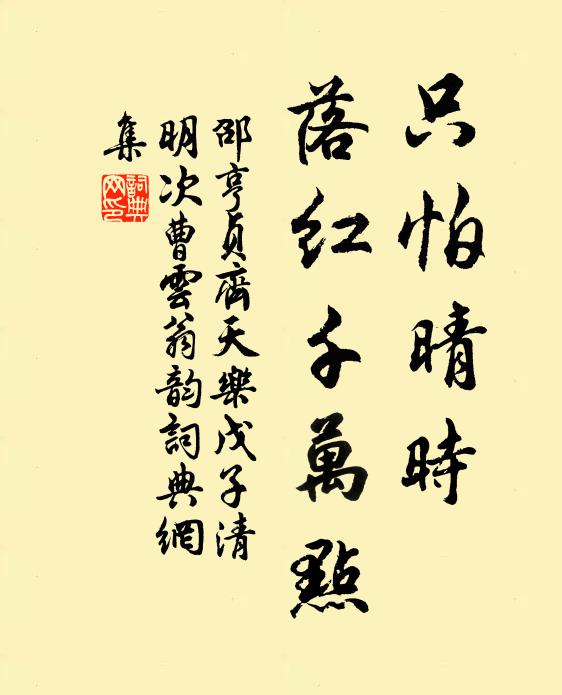 只怕晴時
落紅千萬點
邵亨貞齊天樂戊子清
明次曹雲翁韵詞典網
集
詞典
网印